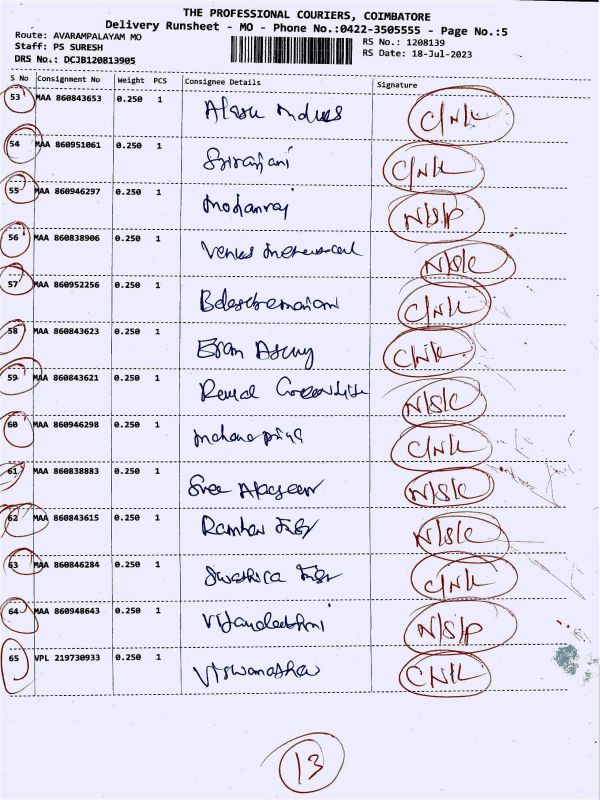 THE PROFESSIONAL COURIERS, COIMBATORE
Delivery Runsheet - MO - Phone No.:0422-3505555 - Page No.:5
Route: AVARAMPALAYAM MO
Staff: PS SURESH
DRS No.: DCJB120813905
RS No.: 1208139
RS Date: 18-Jul-2023
S No Consignment No Weight PCS Consignee Details Signature
53 MAA 860843653 0.250 1 C/N/L
54 MAA 860951061 0.250 1 C/N/L
55 MAA 860946297 0.250 1 Mohanraj N/S/P
56 MAA 860838906 0.250 1 N/S/C
57 MAA 860952256 0.250 1 C/N/L
58 MAA 860843623 0.250 1 C/N/L
59 MAA 860843621 0.250 1 N/S/C
60 MAA 860946298 0.250 1 C/N/L
61 MAA 860838883 0.250 1 Sree N/S/C
62 MAA 860843615 0.250 1 N/S/C
63 MAA 860846284 0.250 1 C/N/L
64 MAA 860948643 0.250 1 N/S/P
65 VPL 219730933 0.250 1 C/N/L
13